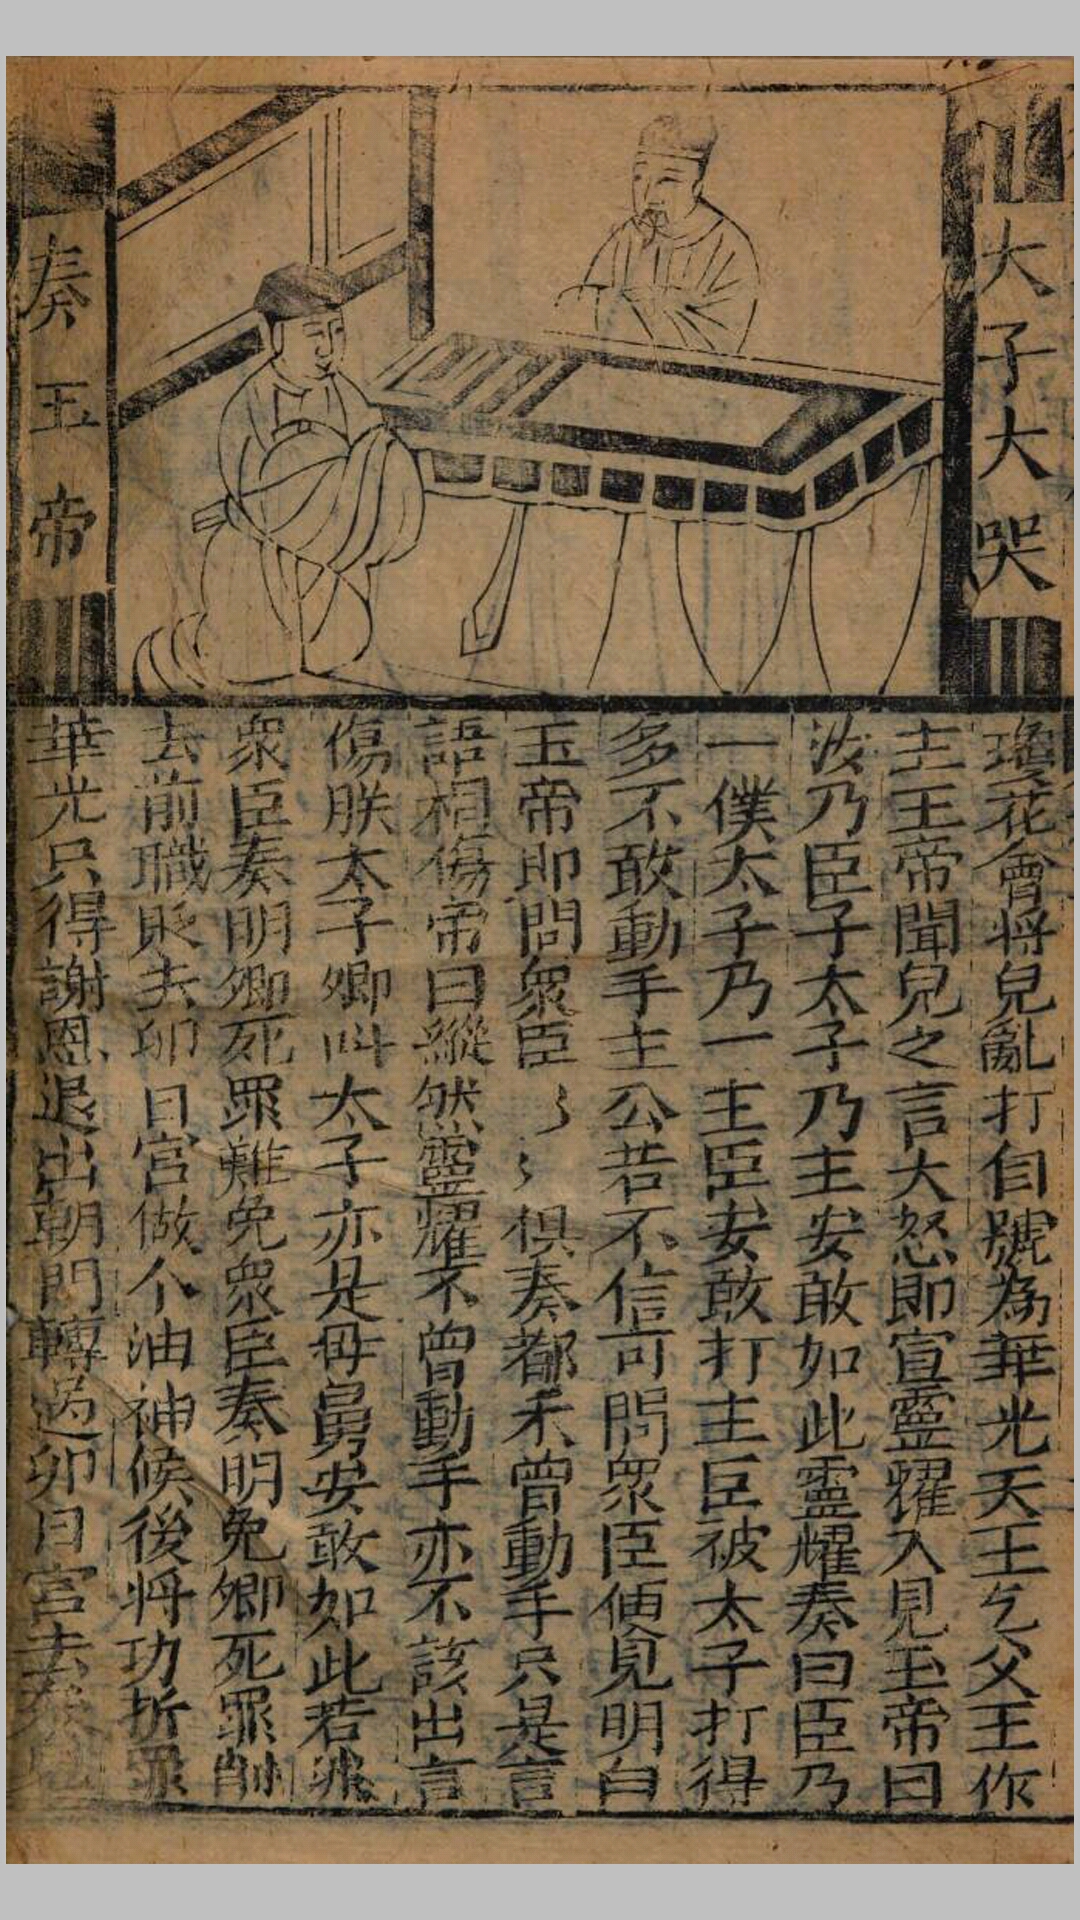 大子大哭
奏玉帝
瓊花會將兒亂打自號為華光天王乞父王作
主王帝聞兒之言大怒即宣靈耀入見玉帝曰
汝乃臣子太子乃主安敢如此靈耀奏曰臣乃
一僕太子乃一主臣安敢打主臣被太子打得
多不敢動手主公若不信可問衆臣便見明白
玉帝即問衆臣〻〻俱奏都未曾動手只是言
語相傷帝曰縱然靈耀不曾動手亦不該出言
傷朕太子卿叫太子亦是毋舅安敢如此若非
衆臣奏明卿死罪難免衆臣奏明免卿死罪削
去前職貶去卯日宮做个油神候後將功折罪
華光只得謝恩退出朝門轉過卯日宮去